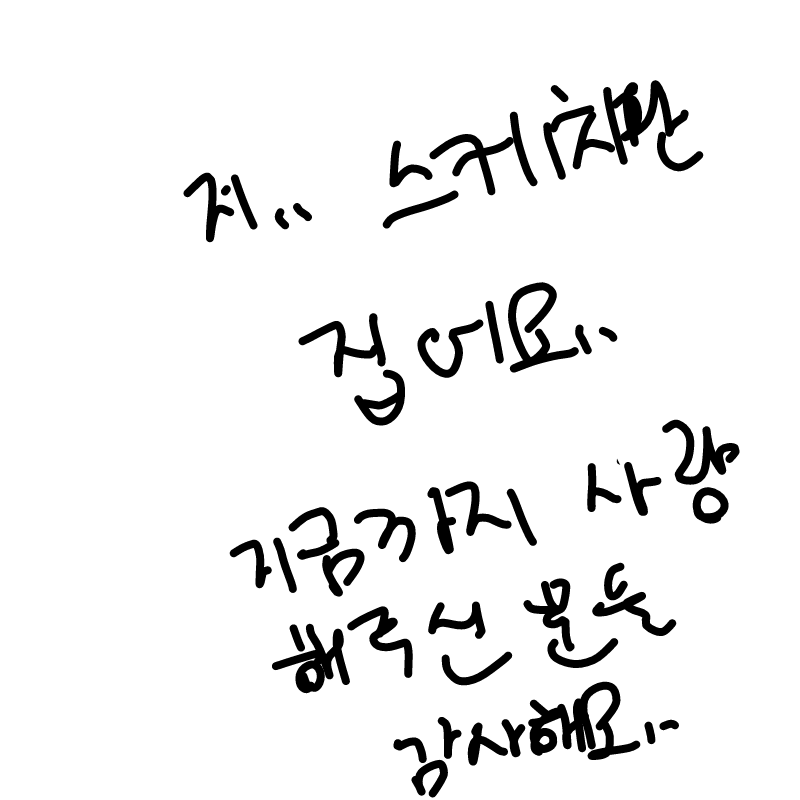 저.. 스케치판
접어요..
지금까지 사랑
해주신 분들
감사해요..